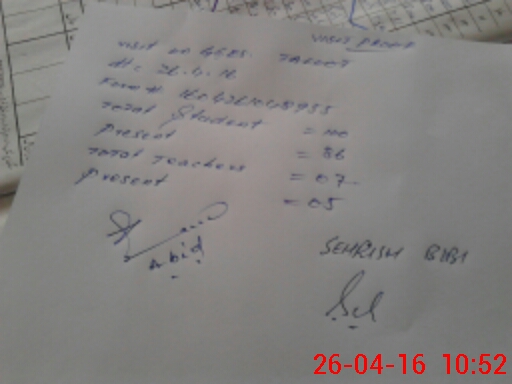 VISIT PROOF
visit on GGPS. TAROOT
dt: 26.4.16
Form #
Total Student = 110
Present = 86
Total Teachers = 07
Present = 05
Abid
SEHRISH BIBI
26-04-16 10:52